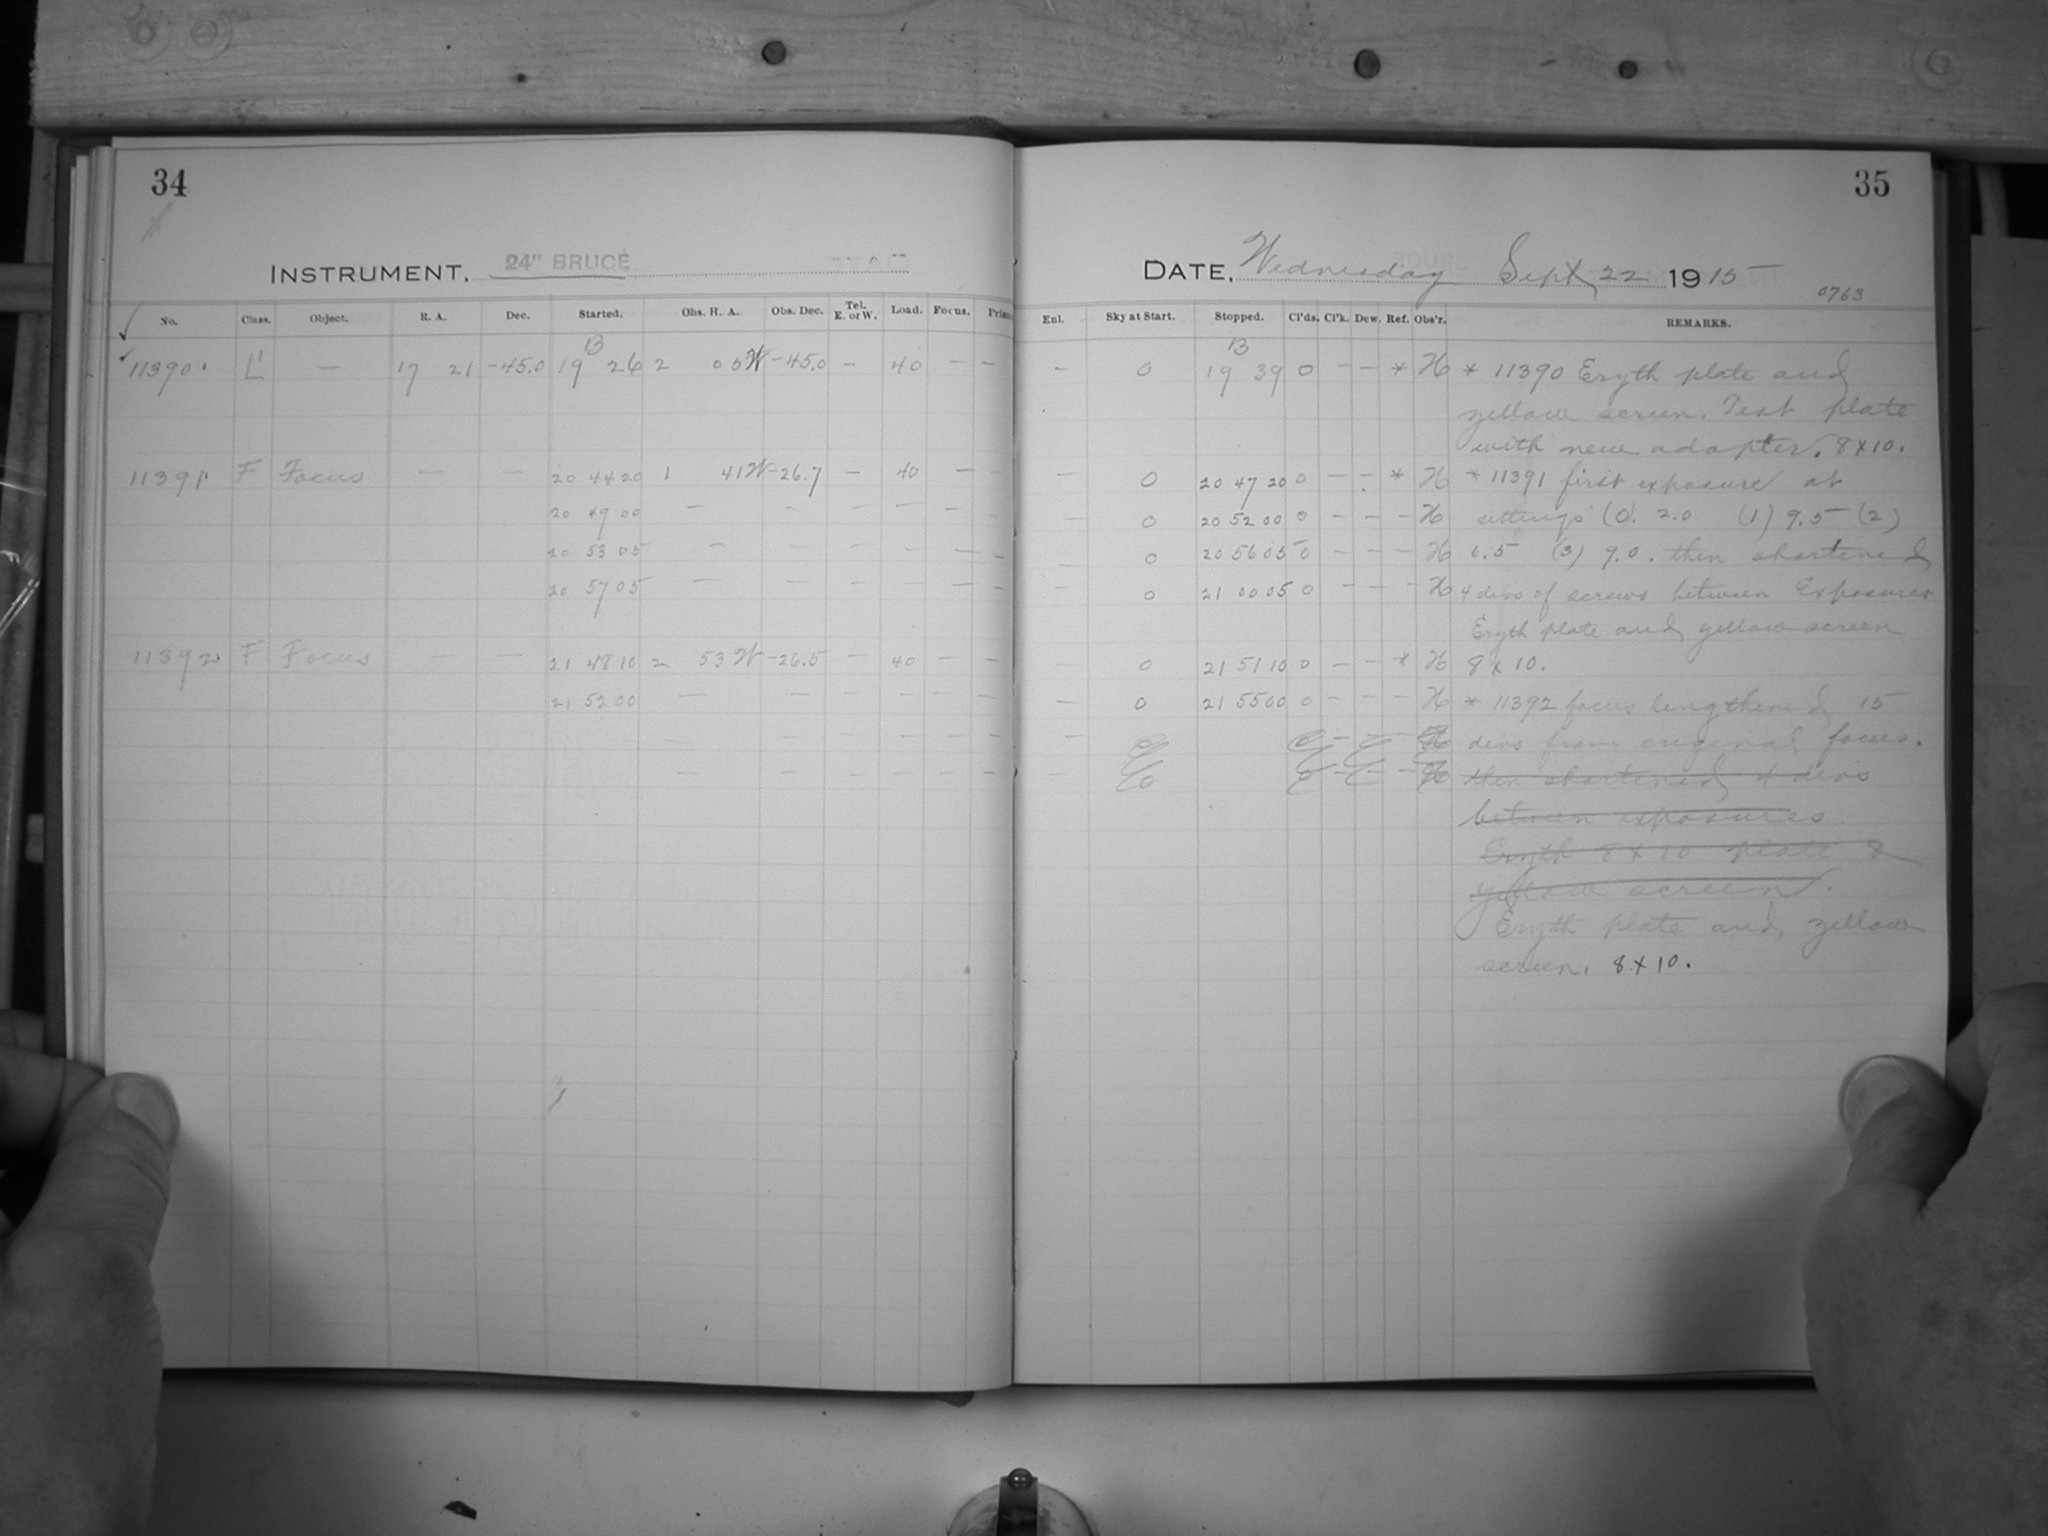 34
INSTRUMENT, 24" BRUCE
No. Class. Object. R. A. Dec. Started. Obs. H. A. Obs. Dec. Tel. E. or W. Load. Focus.
B
11390 L — 17 21 -45.0 19 26 2 05 W -45.0 — 40 — —
11391 F Focus — — 20 44 20 1 41 W -26.7 — 40 — —
20 49 00 — — — — — —
20 53 05 — — — — — —
20 57 05 — — — — — —
11392 F Focus — — 21 48 10 2 53 W -26.5 — 40 — —
21 52 00 — — — — — —
35
DATE, Wednesday Sept 22 1915
0763
Enl. Sky at Start. Stopped. Cl'ds. Cl'k. Dew. Ref. Obs'r. REMARKS.
B
— 0 19 39 0 — — * H * 11390 Eryth plate and
yellow screen. Test plate
with new adapter. 8x10.
— 0 20 47 20 0 — — * H * 11391 first exposure at
— 0 20 52 00 0 — — — H settings (0). 2.0 (1) 9.5 (2)
— 0 20 56 05 0 — — — H (3) 9.0. then shortened
— 0 21 00 05 0 — — — H 4 divs of screws between Exposures
Eryth plate and yellow screen
— 0 21 51 10 0 — — * H 8 x 10.
— 0 21 55 00 0 — — — H * 11392 focus lengthened 15
divs from original focus.
then shortened 4 divs
between exposures.
Eryth 8 x 10 plate &
yellow screen.
Eryth plate and yellow
screen. 8x10.